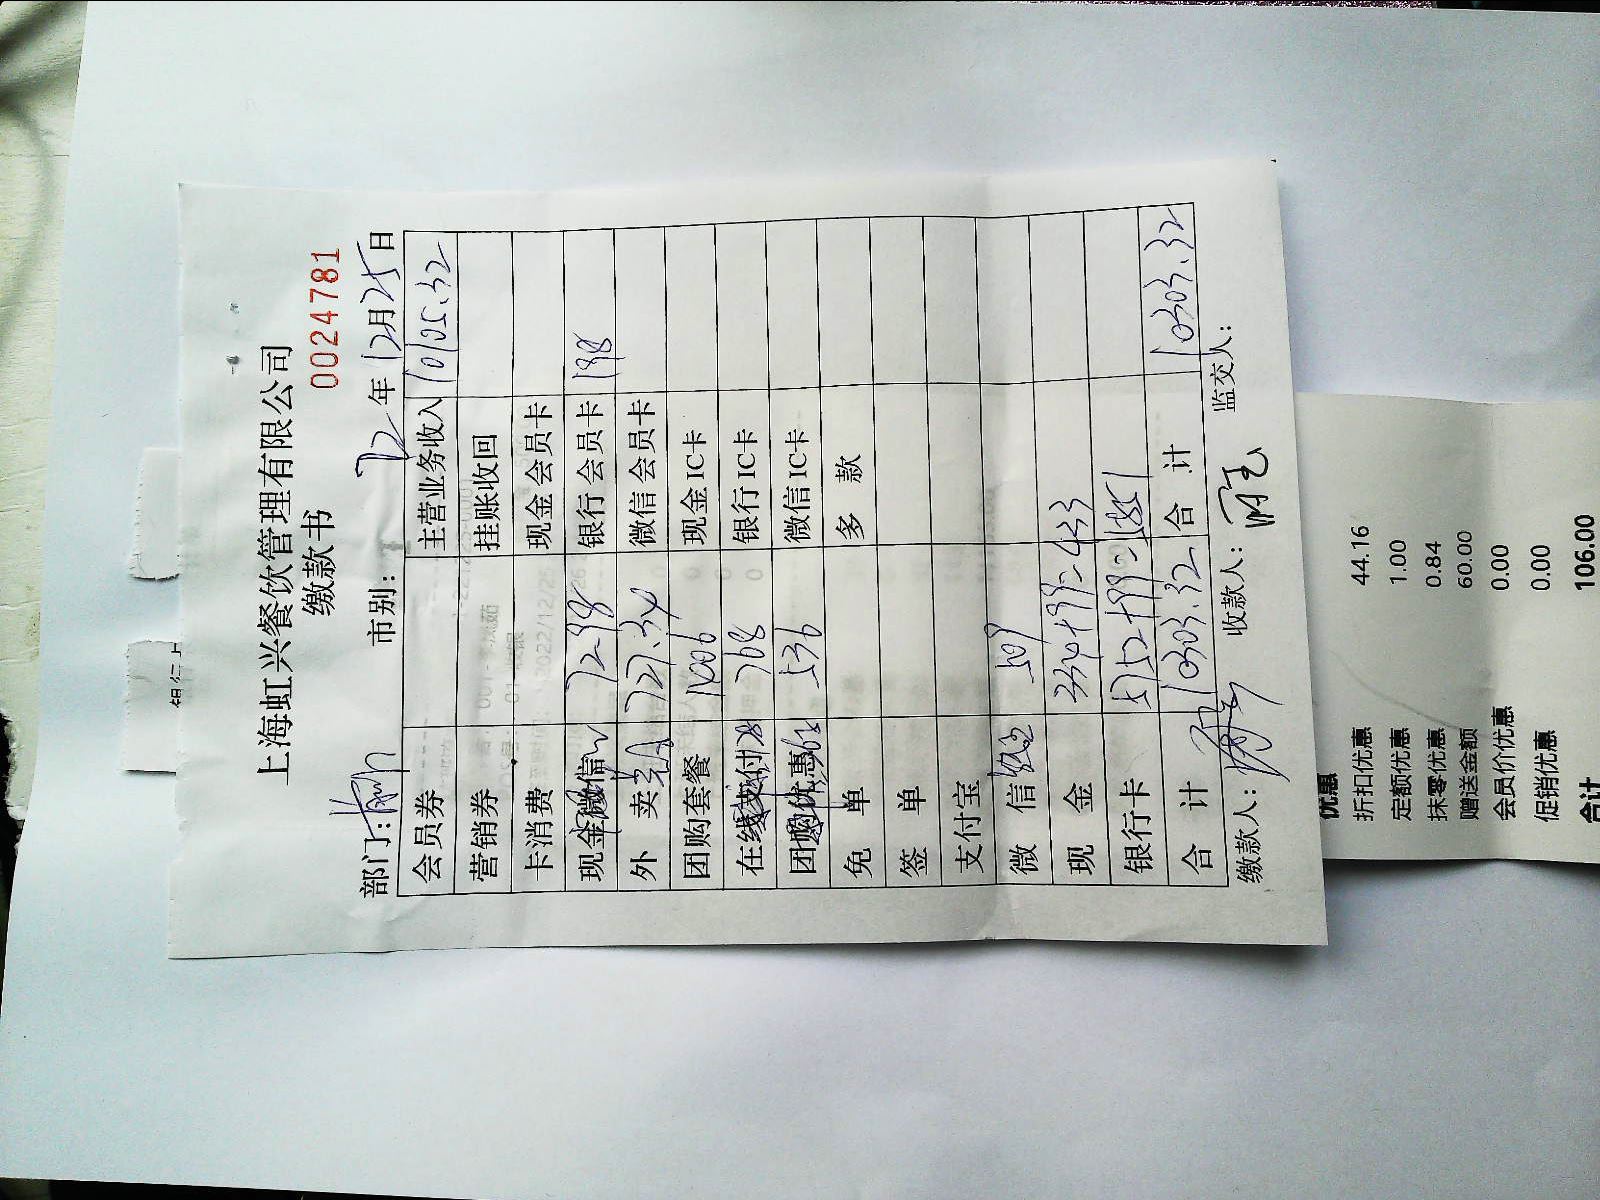 上海虹兴餐饮管理有限公司
缴款书
0024781
部门: 市别: 22年12月25日
会员券 主营业务收入 10105.32
营销券 挂账收回
卡消费 现金会员卡
现金微信 72.98 银行会员卡 198
外卖 727.34 微信会员卡
团购套餐 1006 现金IC卡
在线支付 768 银行IC卡
团购优惠 536 微信IC卡
免单 多款
签单
支付宝
微信 509
现金 334+99=433
银行卡 5752+99=5851
合计 10303.32 合计 10303.32
缴款人: 收款人: 监交人:
优惠
折扣优惠 44.16
定额优惠 1.00
抹零优惠 0.84
赠送金额 60.00
会员价优惠 0.00
促销优惠 0.00
合计 106.00